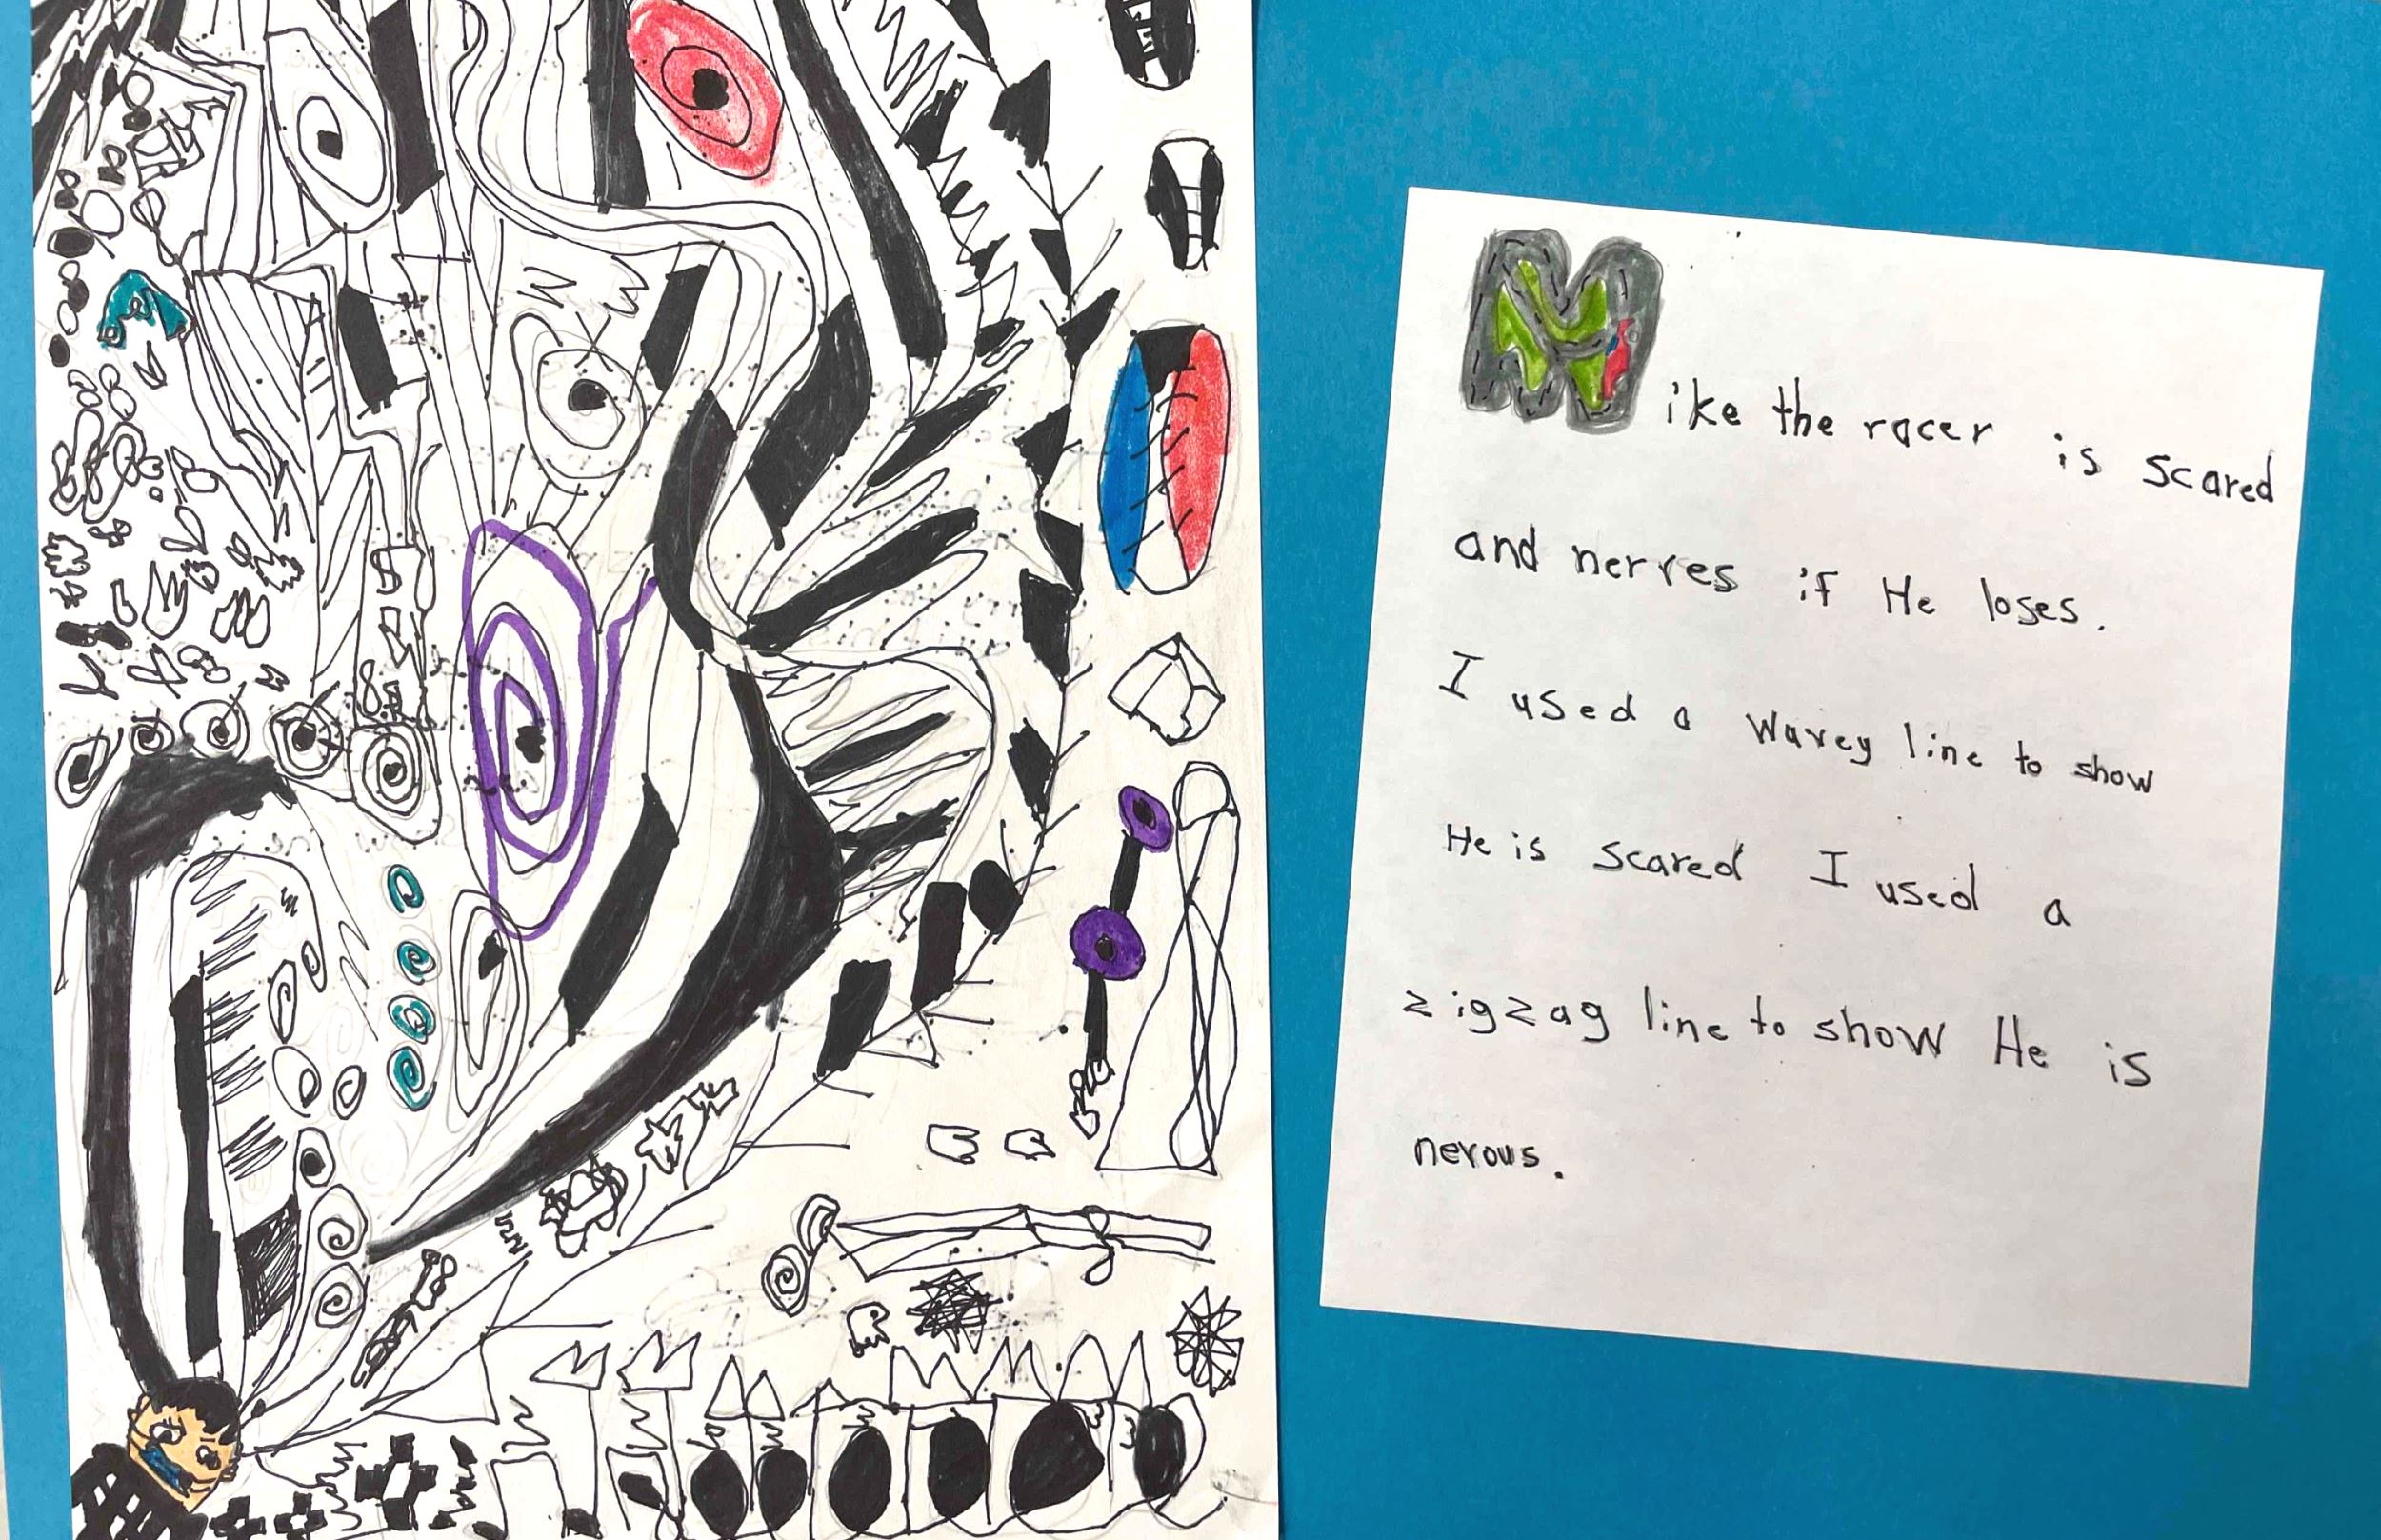 Mike the racer is scared
and nerves if He loses.
I used a wavey line to show
He is scared I used a
zigzag line to show He is
nerous.